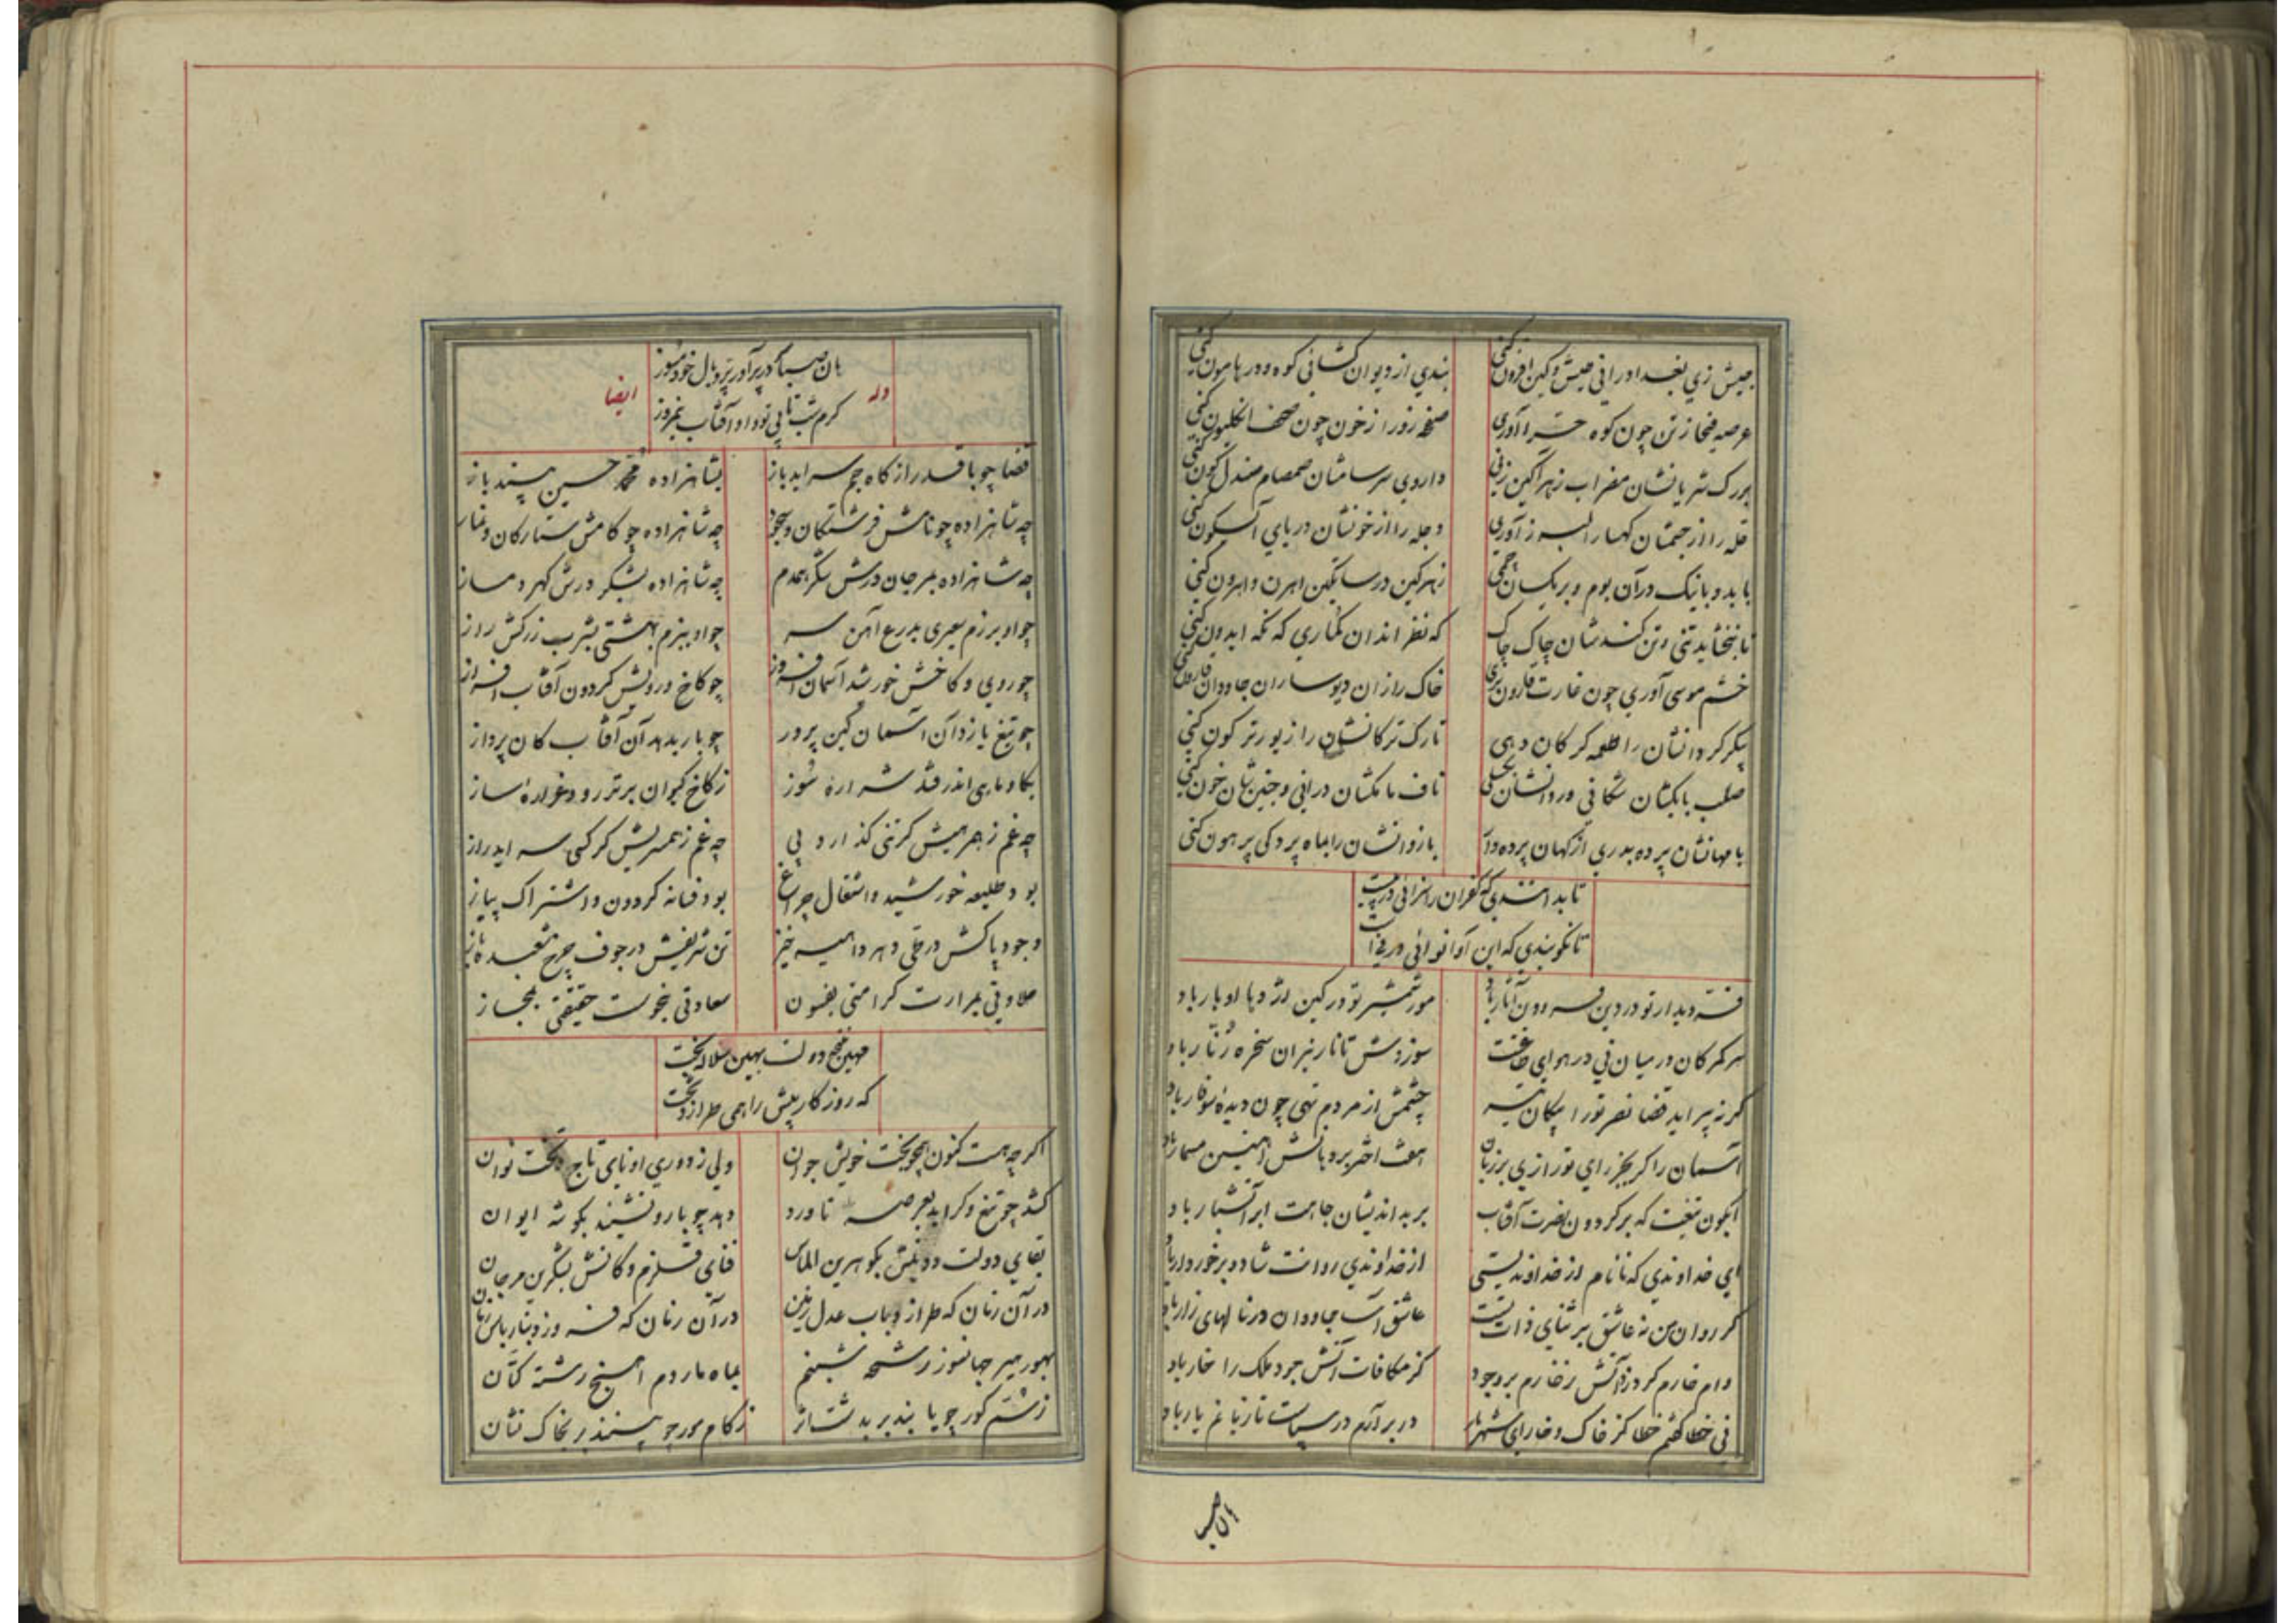 جیش زی بغداد رانی جیش و کین افزون کنی
بندی از دیوان گشائی کوه و در هامون کنی
عرصه فیحا ز تن چون کوه حرا آوری
صفحه زورا ز خون چون صحف انکلیون کنی
بر رک شریانشان مضراب زهراگین زنی
داروی سرسامشان صمصام صندل گون کنی
قله را از جسمشان کهسار البرز آوری
دجله را از خونشان دریای آبسکون کنی
با بد و با نیک در آن بوم و بر یکسان چمی
زهر کین در ساتکین اهرن و اهرون کنی
تا نبخشاید تنی و تن کندشان چاک چاک
که نظر اندر کماری که نکه ایدون کنی
خشم موسی آوری چون غارت قارون بری
خاک را زان دیوساران جاودان قارون کنی
پیکر کردانشان را طعمه کرکان دهی
تارک ترکانشان را زیور ترکون کنی
صلب بابکشان شکافی وردانشان
ناف مامکشان درانی و جنین شان خون کنی
با مهانشان پرده بدری از کهان پرده دار
بازوانشان را بماه پردکی پرهون کنی
تا بد اندیدی که کفران را سزائی در پی است
تا نکو بندی که این آوا نوائی در نی است
فتنه دیدار تو در دین فریدون آثار باد
مور شمشیر تو در کین اژدها اوبار باد
هر کمر کان در میان نی در هوای طاعتت
سوزش تا تار نیران سخره زنار باد
کر نه پیراید قضا نصر تو را پیکان تیر
چشمش از مردم تهی چون دیده سوفار باد
آسمان را کر بجز رای تو رازی بر زبان
هفت اختر بر دهانش آهنین مسمار باد
آبکون تیغت که بر کردون نصرت آفتاب
بر بد اندیشان جاهت ابر آتشبار باد
ای خداوندی که تا نام از خداوندیستی
از خداوندی روانت شاد و برخوردار باد
کر روان من نه عاشق بر ثنای ذات تست
عاشق آسا جاودان در نالهای زار باد
وام خارم کر در آتش زخارم بر وجود
کز مکافات آتش جود ملک را خار باد
نی خطا گفتم خطا کز خاک و خارای شهریار
در بر آرم در سپاست تا زبانم یار باد
هان صبا
هان صبا کر پر آور پر و بال خود مسوز
وله
ایضا
کرم شب تابی تو و او آفتاب نیمروز
قضا چو با قدر از کاه جم سراید باز
بشاهزاده محمد حسین پسندد باز
چه شاهزاده چو نامش فرشتگان و سجود
چه شاهزاده چو کامش ستارکان و نماز
چه شاهزاده بمرجان درش شکر همدم
چه شاهزاده بشکر درش کهر دمساز
چو او برزم سپهری بدرع آهن
چو او ببزم بهشتی بشرب زرکش راز
چو روی و کاخش خورشید آسمان افروز
چو کاخ و رویش کردون آفتاب افراز
چو تیغ یازد آن آسمان کین پرور
چو بار بدهد آن آفتاب کان پرداز
بکاو ماهی اندر فتد شراره سوز
ز کاخ کیوان برتر رود غواره ساز
چه غم ز هر میش کر تنی گذارد پی
چه غم ز عمریش کر کسی سراید راز
بود طلیعه خورشید و اشتعال چراغ
بود فسانه کردون و اشتراک پیاز
وجود پاکش در طی دهر داهیه خیز
تن شریفش در جوف چرخ شعبده باز
حلاوتی بمرارت کرامتی بفسون
سعادتی بنحوست حقیقتی بمجاز
مهین نتیجه دولت بهین سلاله بخت
که روزکار پیش را همی طرازد تخت
اکر چه هست کنون همچو بخت خویش جوان
ولی ز دوری او نای تاج و تخت نوان
کشد چو تیغ و کراید بعرصه ناورد
دهد چو بار و نشیند بکوشه ایوان
بقای دولت و دینش بکوهرین الماس
فنای قلزم و کانش بشکرین مرجان
در آن زمان که طرازد بباب عدل زمین
در آن زمان که فروزد بنار باس زمان
بهور مهر جهانسوز رشحه شبنم
بماه ماردم آهیخ رشته کتان
ز شم کور چو یابند ببر بدشت اثر
ز کام مور چو بینند ببر بخاک نشان